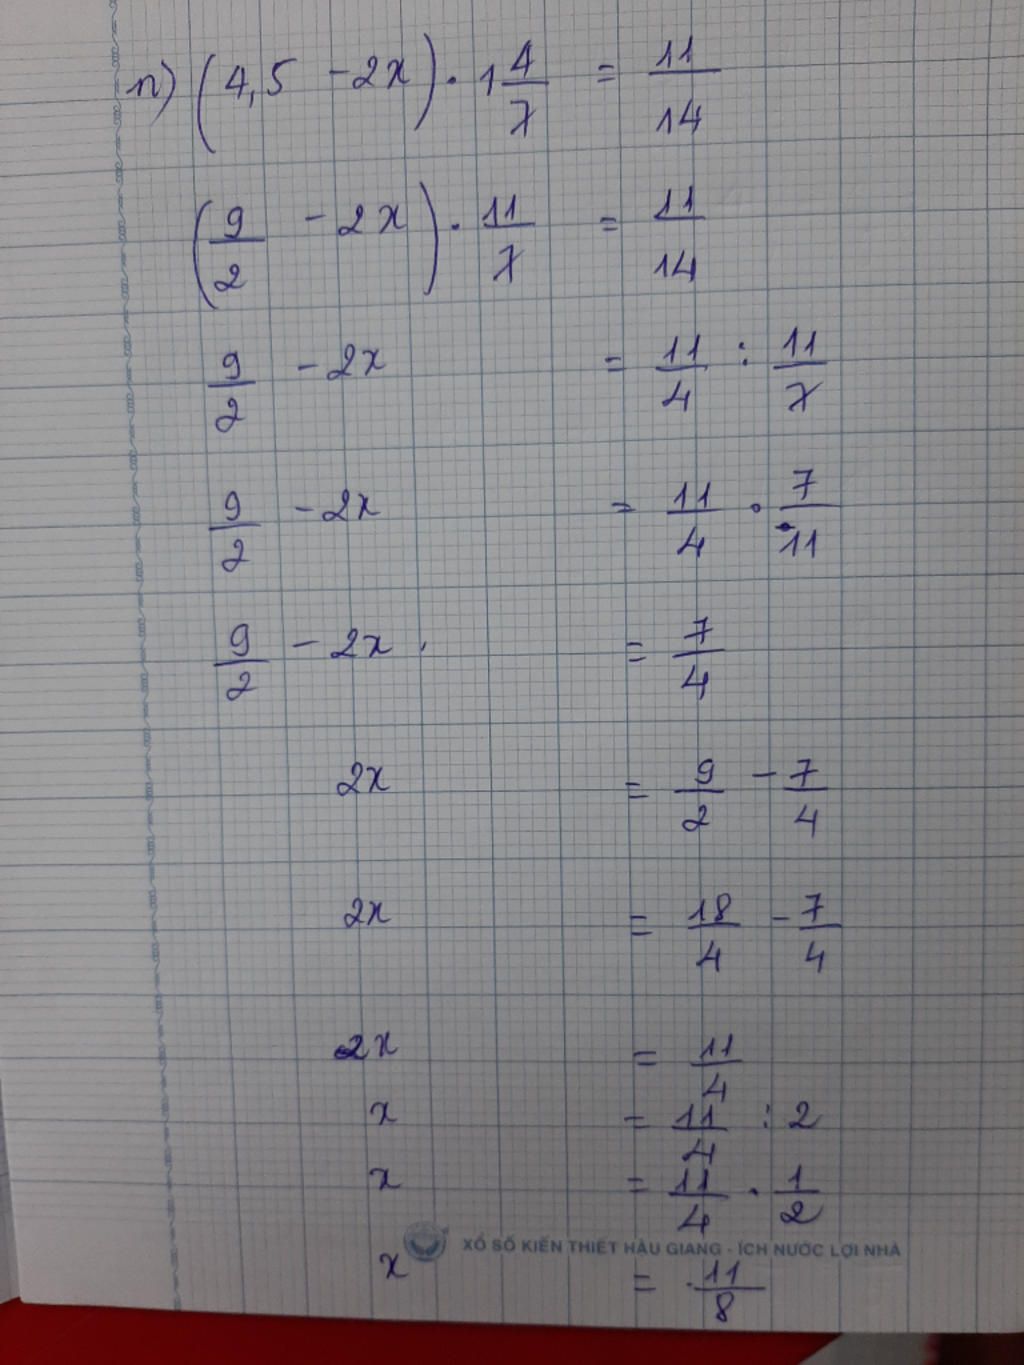 n) (4,5 - 2x) . 1 4/7 = 11/14
(9/2 - 2x) . 11/7 = 11/14
9/2 - 2x = 11/4 : 11/7
9/2 - 2x = 11/4 . 7/11
9/2 - 2x = 7/4
2x = 9/2 - 7/4
2x = 18/4 - 7/4
2x = 11/4
x = 11/4 : 2
x = 11/4 . 1/2
XỔ SỐ KIẾN THIẾT HẬU GIANG - ÍCH NƯỚC LỢI NHÀ
x = 11/8